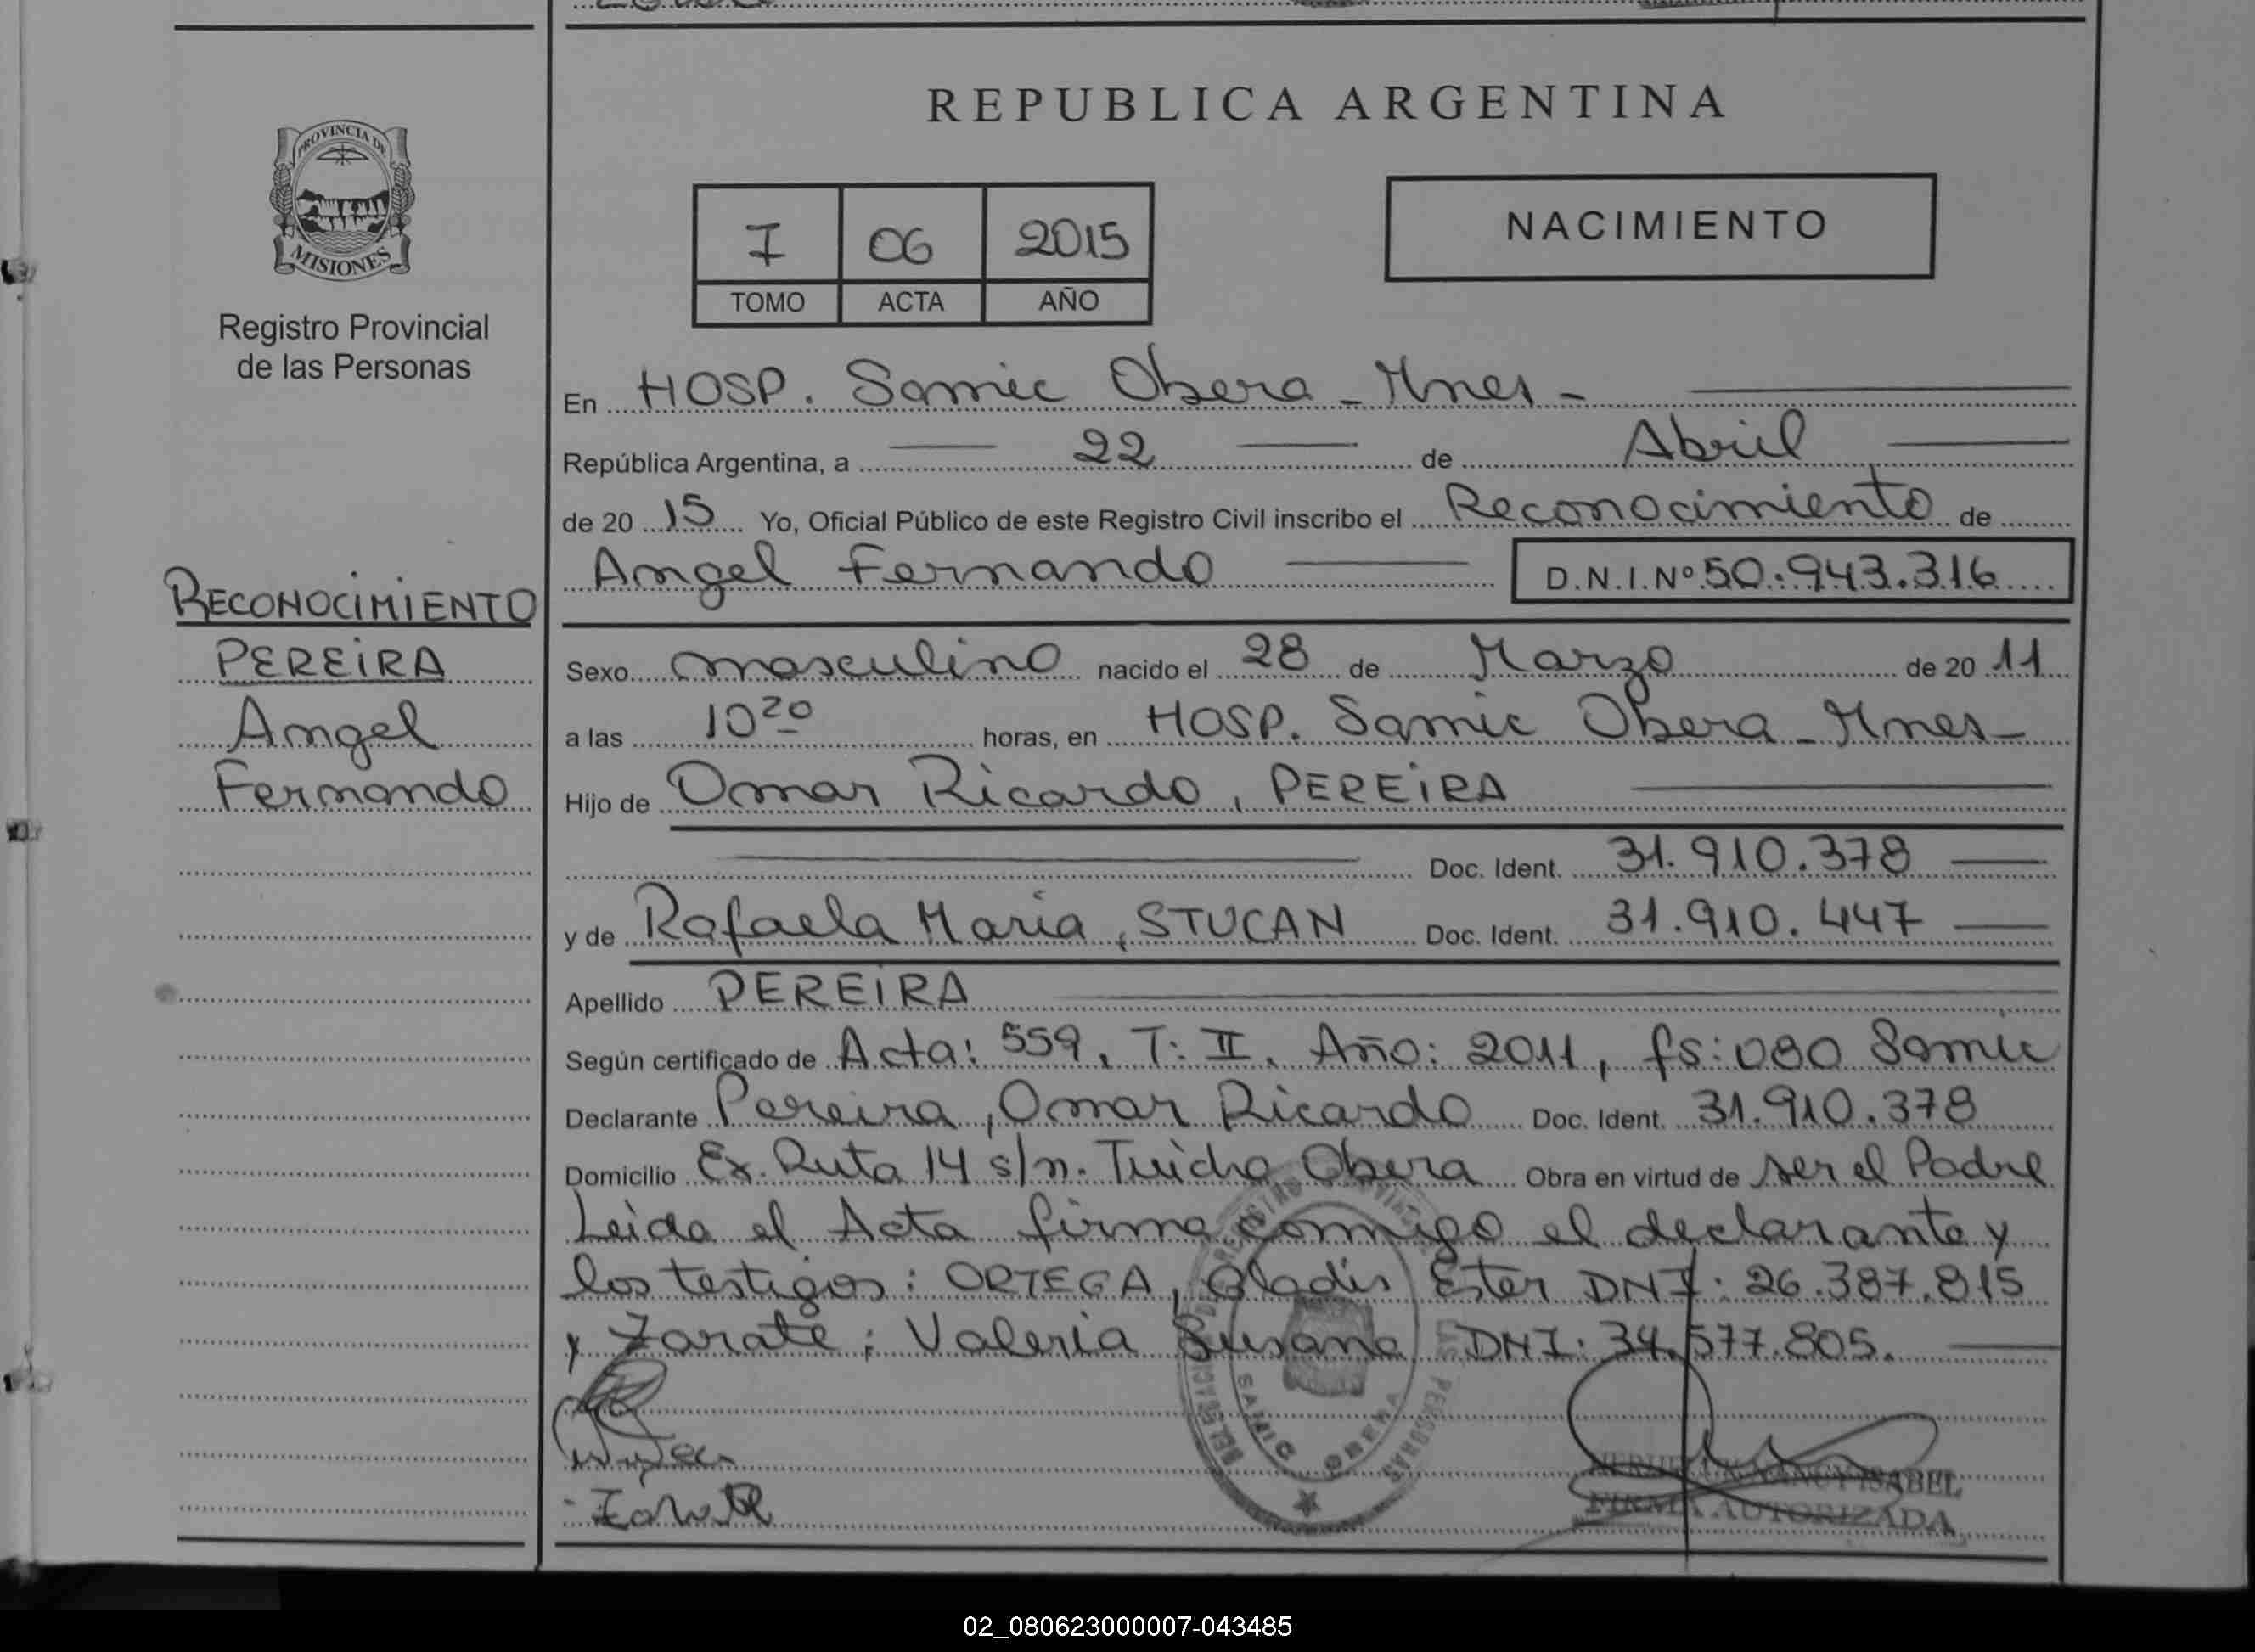 REPUBLICA ARGENTINA
PROVINCIA DE
MISIONES
Registro Provincial
de las Personas
7 06 2015
TOMO ACTA AÑO
NACIMIENTO
En HOSP. Samic Obera - Mnes -
República Argentina, a 22 de Abril
de 20 15 Yo, Oficial Público de este Registro Civil inscribo el Reconocimiento de
Angel Fernando D.N.I.Nº 50.943.316
RECONOCIMIENTO
PEREIRA
Angel
Fernando
Sexo masculino nacido el 28 de Marzo de 20 11
a las 10 20 horas, en HOSP. Samic Obera - Mnes -
Hijo de Omar Ricardo, PEREIRA
Doc. Ident. 31.910.378
y de Rafaela Maria, STUCAN Doc. Ident. 31.910.447
Apellido PEREIRA
Según certificado de Acta: 559, T: II, Año: 2011, fs: 080 Samic
Declarante Pereira, Omar Ricardo Doc. Ident. 31.910.378
Domicilio Ex. Ruta 14 s/n. Tuicha Obera Obra en virtud de ser el Padre
Leida el Acta firma conmigo el declarante y
los testigos: ORTEGA, Gladis Ester DNI: 26.387.815
y Zarate; Valeria Susana DNI: 34.577.805.
SAMIC OBERA
ISABEL
FIRMA AUTORIZADA
02_080623000007-043485